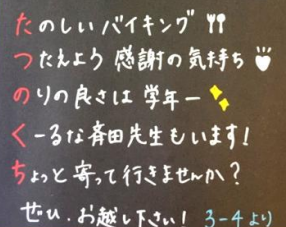 たのしいバイキング
つたえよう 感謝の気持ち
のりの良さは 学年一
くーるな斉田先生もいます!
ちょっと寄って行きませんか?
ぜひ.お越し下さい! 3-4より